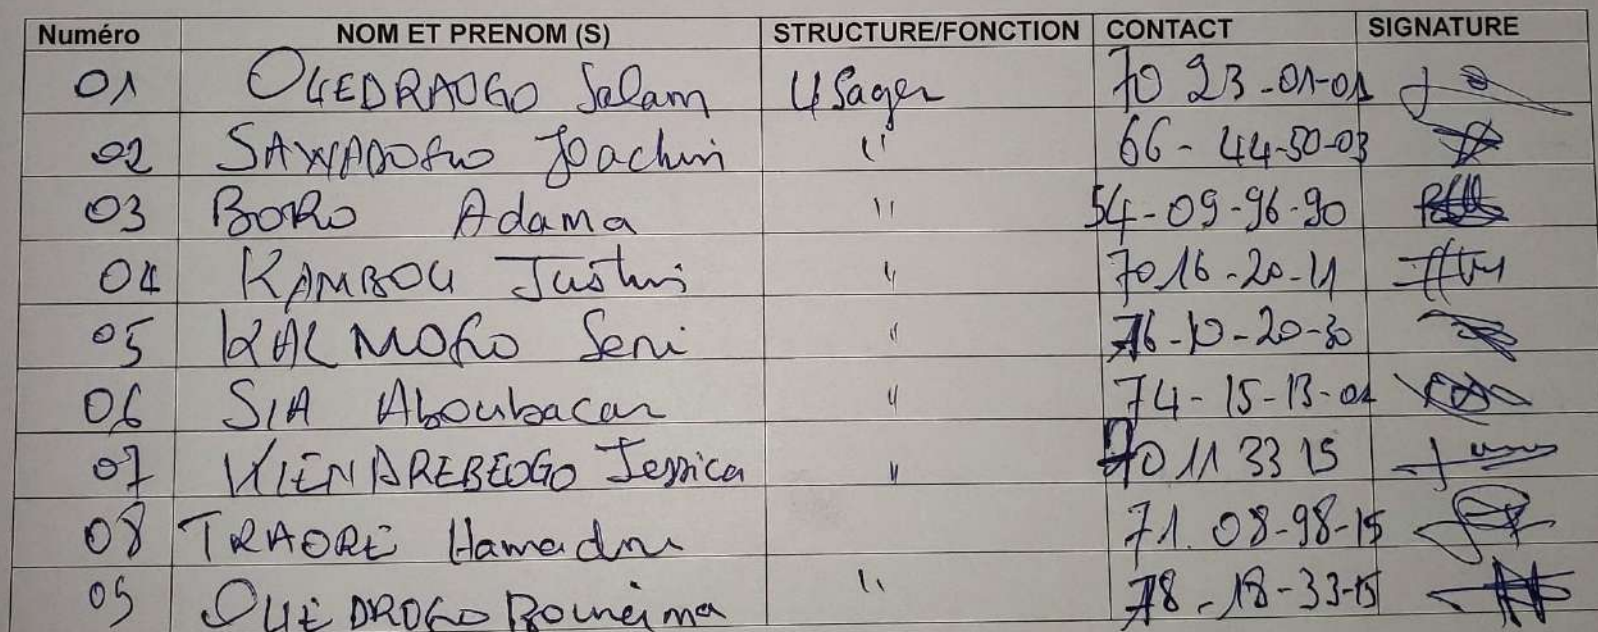 Numéro NOM ET PRENOM (S) STRUCTURE/FONCTION CONTACT SIGNATURE
01 OUEDRAOGO Salam Usager 70 23-01-01
02 SAWADOGO Joachim " 66-44-50-03
03 BORO Adama " 54-09-96-90
04 KAMBOU Justin " 70 16-20-11
05 KALMOGO Seni " 76-10-20-30
06 SIA Aboubacar " 74-15-13-01
07 KIENDREBEOGO Jessica " 70 11 33 15
08 TRAORE Hamadou 71.08-98-15
09 OUEDROGO Boureima " 78-18-33-15